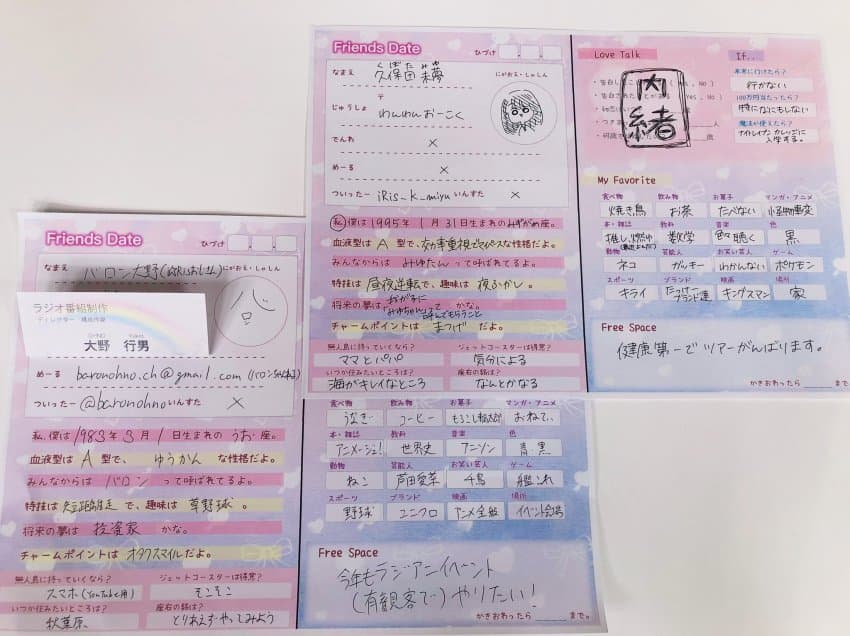 Friends Date
ひづけ
なまえ
くぼた みゆ
久保田 未夢
にがおえ・しゃしん
〒
じゅうしょ
わんわんおーこく
でんわ
×
めーる
×
ついったー iRis_k_miyu いんすた ×
私、僕は1995年1月31日生まれのみずがめ座。
血液型はA型で、効率重視でマイペスな性格だよ。
みんなからは みゆたん って呼ばれてるよ。
特技は 昼夜逆転で、趣味は 夜ふかし。
将来の夢は、 かな。
チャームポイントは まつげ だよ。
無人島に持っていくなら?
ママとパパ
ジェットコースターは得意?
気分による
いつか住みたいところは?
海がキレイなところ
座右の銘は?
なんとかなる
Love Talk
内緒
If..
過去に行けたら?
行かない
100万円当たったら?
特になにもしない
魔法が使えたら?
ナイトレイブンカレッジに
入学する。
My Favorite
食べ物 飲み物 お菓子 マンガ・アニメ
焼き鳥 お茶 たべない 怪物事変
本・雑誌 教科 音楽 色
推し、燃ゆ 数学 聴く 黒
動物 芸能人 お笑い芸人 ゲーム
ネコ ガッキー わかんない ポケモン
スポーツ ブランド 映画 場所
キライ キングスマン 家
Free Space
健康第一でツアーがんばります。
かきおわったら まで。
Friends Date
ひづけ
なまえ
バロン大野
にがおえ・しゃしん
ラジオ番組制作
ディレクター 構成作家
大野 行男
めーる baronohno.ch@gmail.com
ついったー @baronohno いんすた ×
私、僕は1983年3月1日生まれのうお座。
血液型はA型で、ゆうかんな性格だよ。
みんなからは バロン って呼ばれてるよ。
特技は 短距離走で、趣味は 草野球。
将来の夢は 投資家 かな。
チャームポイントは オタクスマイルだよ。
無人島に持っていくなら?
スマホ(YouTube用)
ジェットコースターは得意?
そこそこ
いつか住みたいところは?
秋葉原。
座右の銘は?
とりあえずやってみよう
食べ物 飲み物 お菓子 マンガ・アニメ
うなぎ コーヒー もろこし輪太郎 おねてぃ
本・雑誌 教科 音楽 色
アニメージュ! 世界史 アニソン 青 黒
動物 芸能人 お笑い芸人 ゲーム
ねこ 芦田愛菜 千鳥 艦これ
スポーツ ブランド 映画 場所
野球 ユニクロ アニメ全般 イベント会場
Free Space
今年もラジアニイベント
(有観客で)やりたい!
かきおわったら まで。